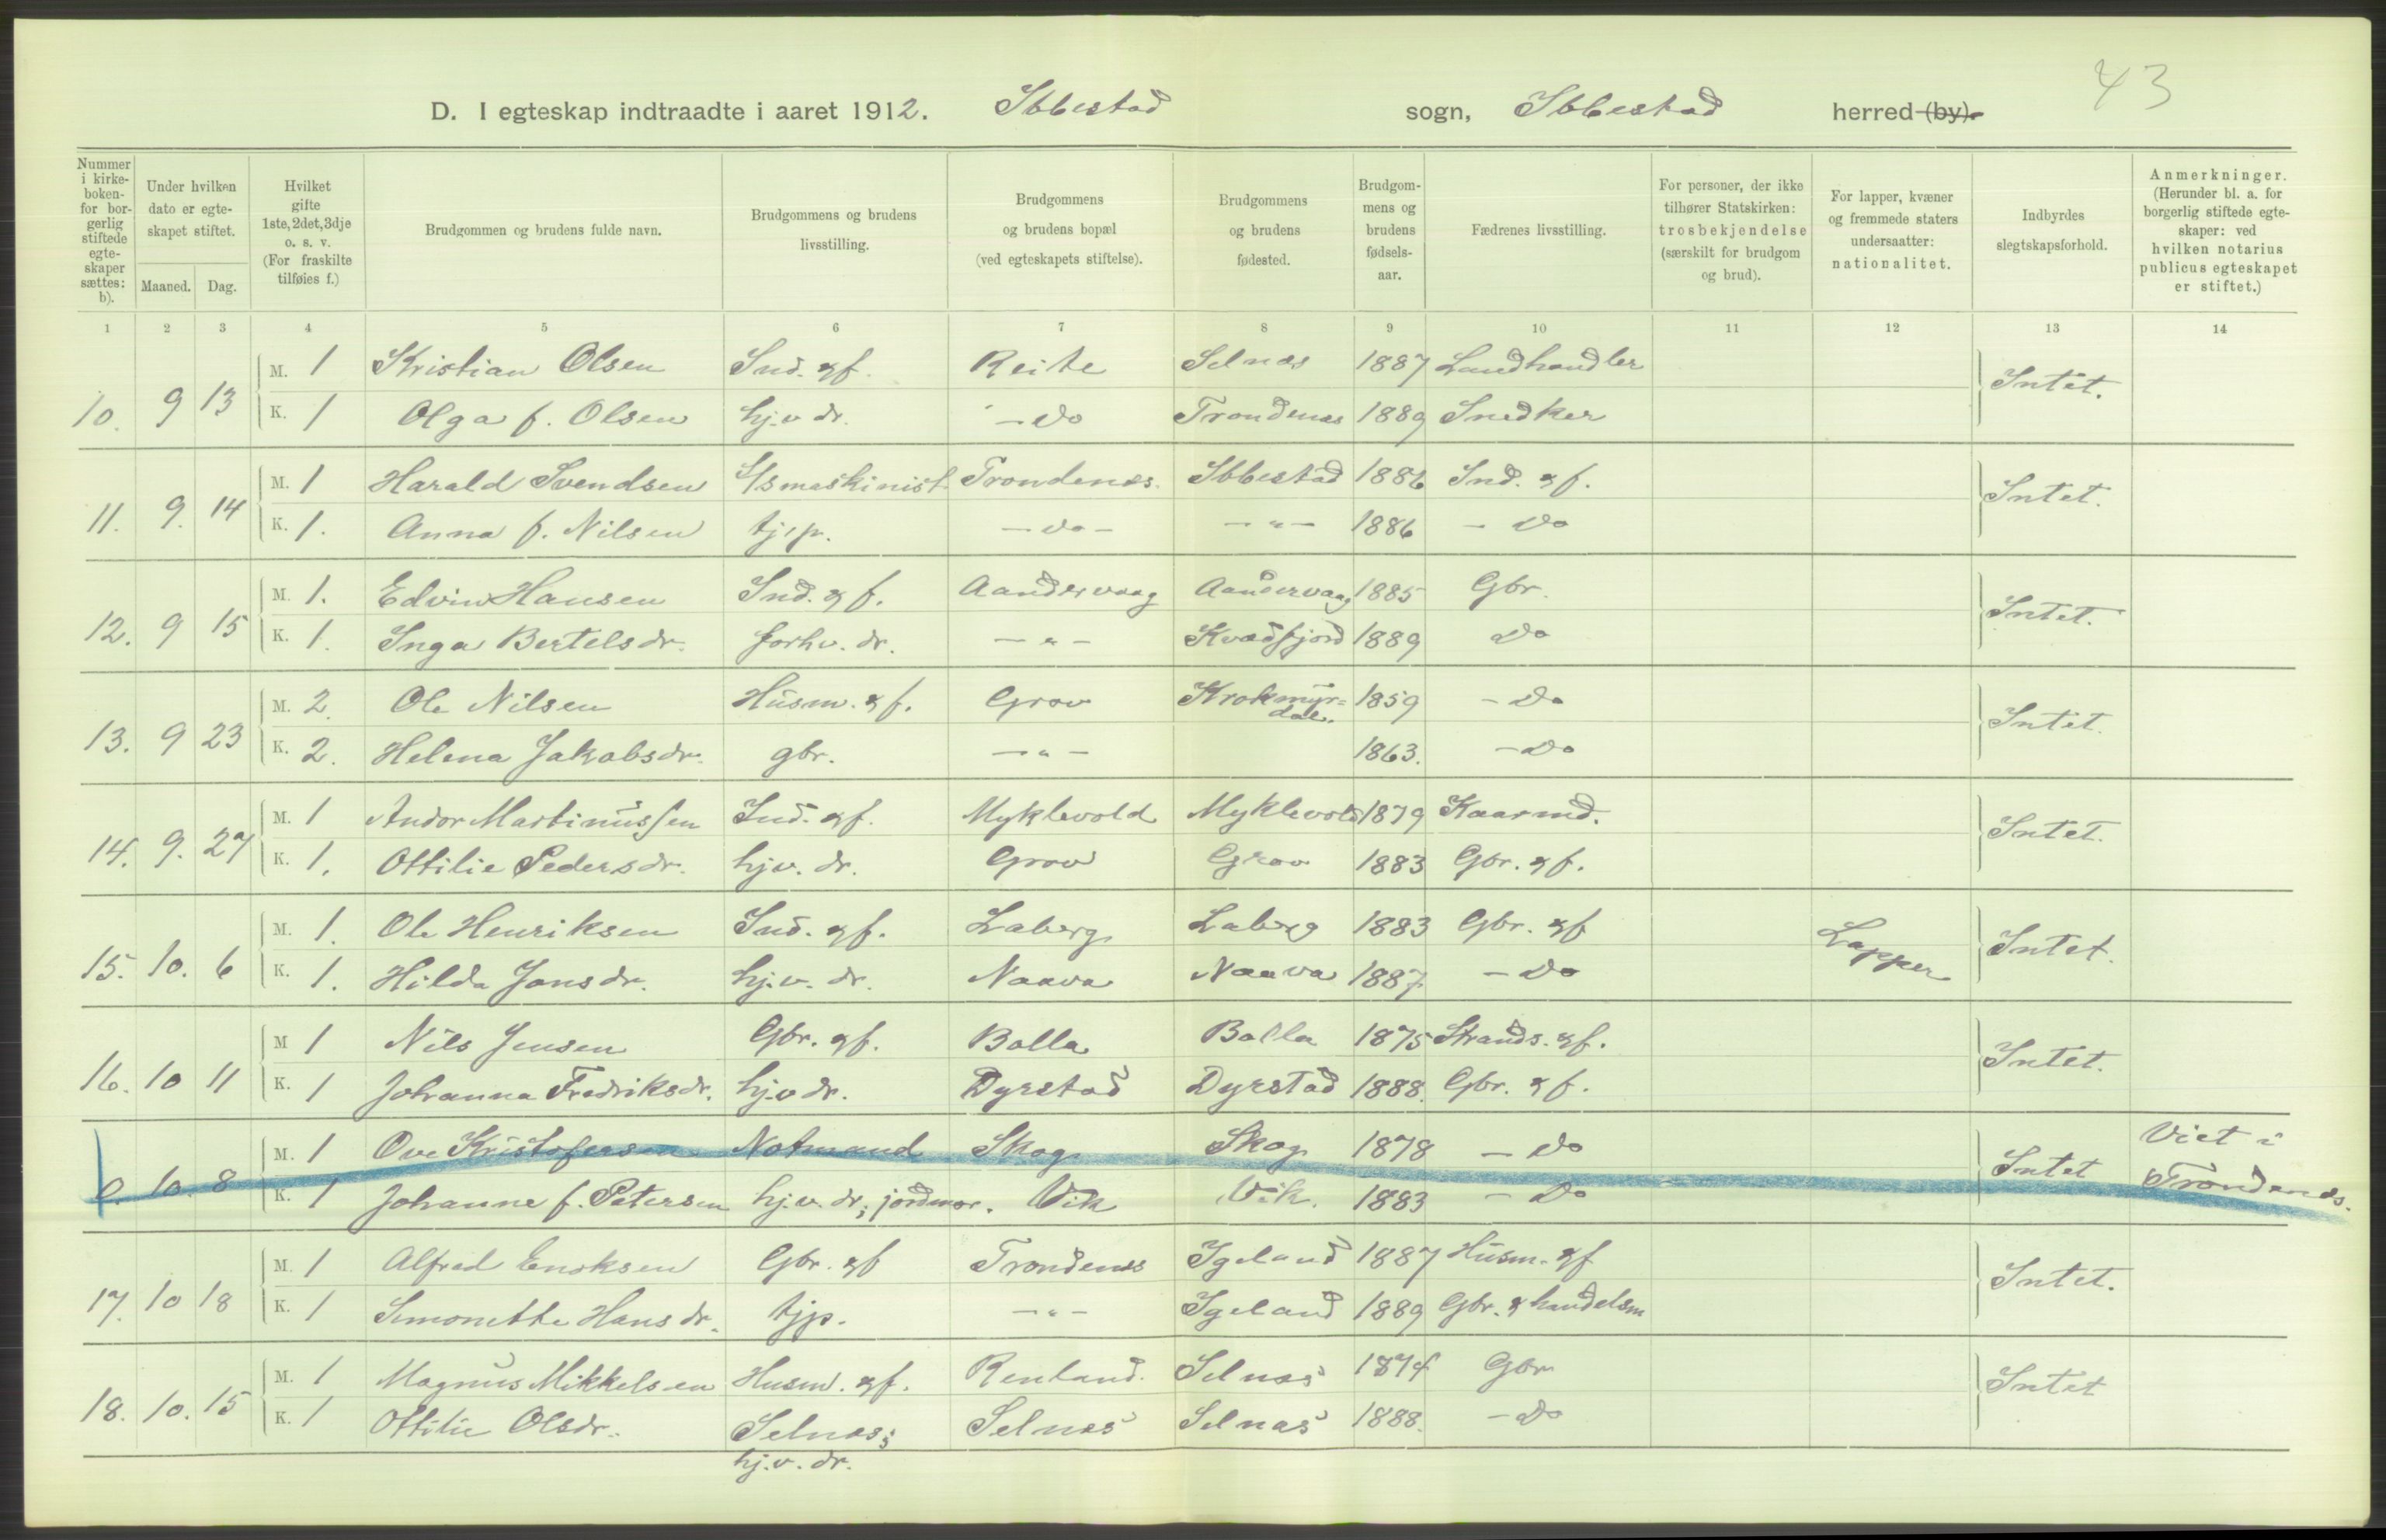 43
D. I egteskap indtraadte i aaret 1912. Ibbestad sogn, Ibbestad herred (by).
Nummer i kirkeboken- for borgerlig stiftede egteskaper sættes: b).
Under hvilken dato er egteskapet stiftet.
Maaned. Dag.
Hvilket gifte 1ste, 2det, 3dje o. s. v. (For fraskilte tilføies f.)
Brudgommen og brudens fulde navn.
Brudgommens og brudens livsstilling.
Brudgommens og brudens bopæl (ved egteskapets stiftelse).
Brudgommens og brudens fødested.
Brudgommens og brudens fødselsaar.
Fædrenes livsstilling.
For personer, der ikke tilhører Statskirken: trosbekjendelse (særskilt for brudgom og brud).
For lapper, kvæner og fremmede staters undersaatter: nationalitet.
Indbyrdes slegtskapsforhold.
Anmerkninger. (Herunder bl. a. for borgerlig stiftede egteskaper: ved hvilken notarius publicus egteskapet er stiftet.)
1 2 3 4 5 6 7 8 9 10 11 12 13 14
M. 1 Kristian Olsen Ind. & f. Reite Selnæs 1887 Landhandler
10. 9 13 Intet.
K. 1 Olga f. Olsen hj.v dr. - Do Trondenæs 1889 Snedker
M. 1 Harald Svendsen D/Smaskinist Trondenæs. Ibbestad 1886 Ind. & f.
11. 9. 14 Intet.
K. 1. Anna f. Nilsen tjp. - do - - " - 1886 - Do
M. 1. Edvin Hansen Ind. & f. Aandervaag Aandervaag 1885 Gbr.
12. 9 15 Intet.
K. 1. Inga Bertelsdr. forhv. dr. - " - Kvædfjord 1889 Do
M. 2. Ole Nilsen Husm. & f. Grov Krokmyrdal. 1859 - Do
13. 9 23 Intet.
K. 2. Helena Jakobsdr. gbr. - " - 1863. - Do
M. 1 Andor Martinussen Ind. & f. Myklevold Myklevold 1879 Kaarmd.
14. 9. 27 Intet.
K. 1. Ottilie Pedersdr. hjv. dr. Grov Grov 1883 Gbr. & f.
M. 1. Ole Henriksen Ind. & f. Laberg Laberg 1883 Gbr. & f
15. 10. 6 Lapper Intet.
K. 1. Hilda Jonsdr. hj.v. dr. Naava Naava 1887 - Do
M 1 Nils Jensen Gbr. & f. Bolla Bolla 1875 Strands. & f.
16. 10 11 Intet.
K. 1 Johanna Fredriksdr. hj.v dr. Dyrstad Dyrstad 1888. Gbr. & f.
M. 1 Ove Kristofersen Notmand Skog Skog 1878 - Do Viet i
0. 10. 8 Intet Trondenæs.
K. 1 Johanne f. Petersen hj.v. dr.; jordmor. Vik Vik. 1883 - Do
M. 1 Alfred Enoksen Gbr. & f Trondenæs Igeland 1887 Husm. & f
17. 10 18 Intet.
K. 1 Simonette Hansdr. tjp. - " - Igeland 1889 Gbr. & handelsm
M. 1 Magnus Mikkelsen Husm. & f. Renland. Selnæs 1874 Gbr
18. 10. 15 Intet
K. 1 Ottilie Olsdr. Selnæs; Selnæs Selnæs 1888. - Do
hj.v. dr.